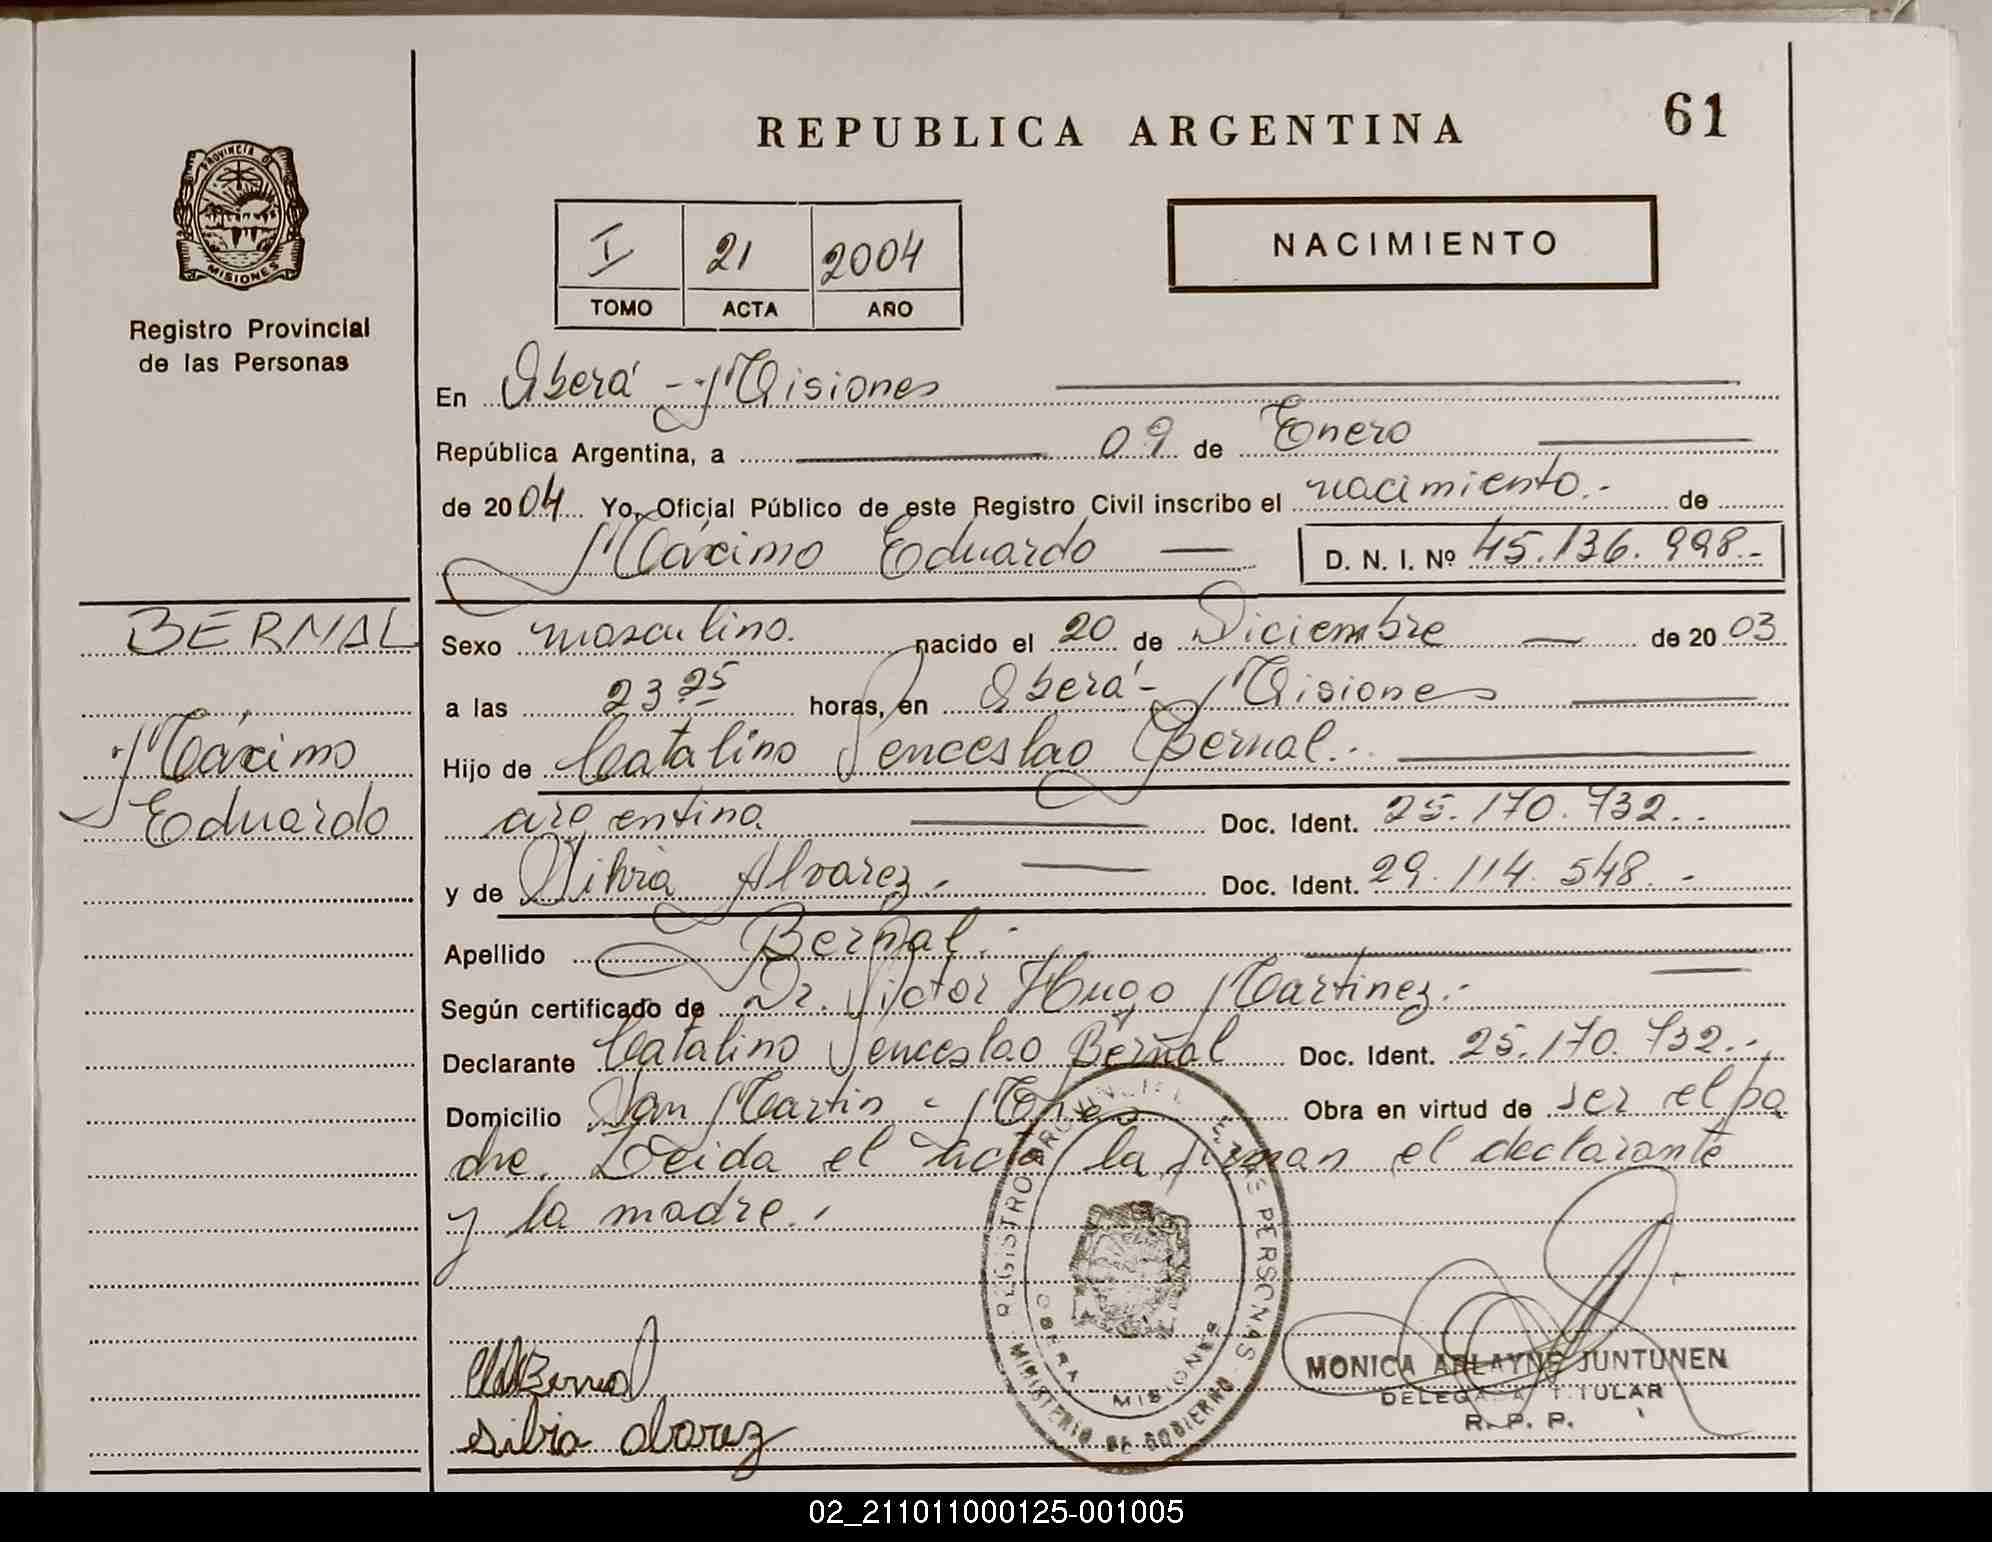 REPUBLICA ARGENTINA
61
PROVINCIA DE
MISIONES
Registro Provincial
de las Personas
I 21 2004
TOMO ACTA AÑO
NACIMIENTO
En Oberá - Misiones
República Argentina, a 09 de Enero
de 2004 Yo, Oficial Público de este Registro Civil inscribo el nacimiento.- de
Máximo Eduardo D. N. I. Nº 45.136.998.-
BERNAL
Máximo
Eduardo
Sexo masculino. nacido el 20 de Diciembre de 2003
a las 23 25 horas, en Oberá - Misiones
Hijo de Catalino Venceslao Bernal.-
argentino Doc. Ident. 25.170.732.-
y de Silvia Alvarez.- Doc. Ident. 29.114.548.-
Apellido Bernal.-
Según certificado de Dr. Victor Hugo Martinez.-
Declarante Catalino Venceslao Bernal Doc. Ident. 25.170.732.-
Domicilio San Martin - Obra en virtud de ser el pa
dre. Leida el acta la firman el declarante
y la madre.-
REGISTRO PROVINCIAL DE LAS PERSONAS
OBERA MISIONES
MINISTERIO DE GOBIERNO
Bernal
silvia alvarez
MONICA ARLAYNE JUNTUNEN
DELEGADA TITULAR
R. P. P.
02_211011000125-001005